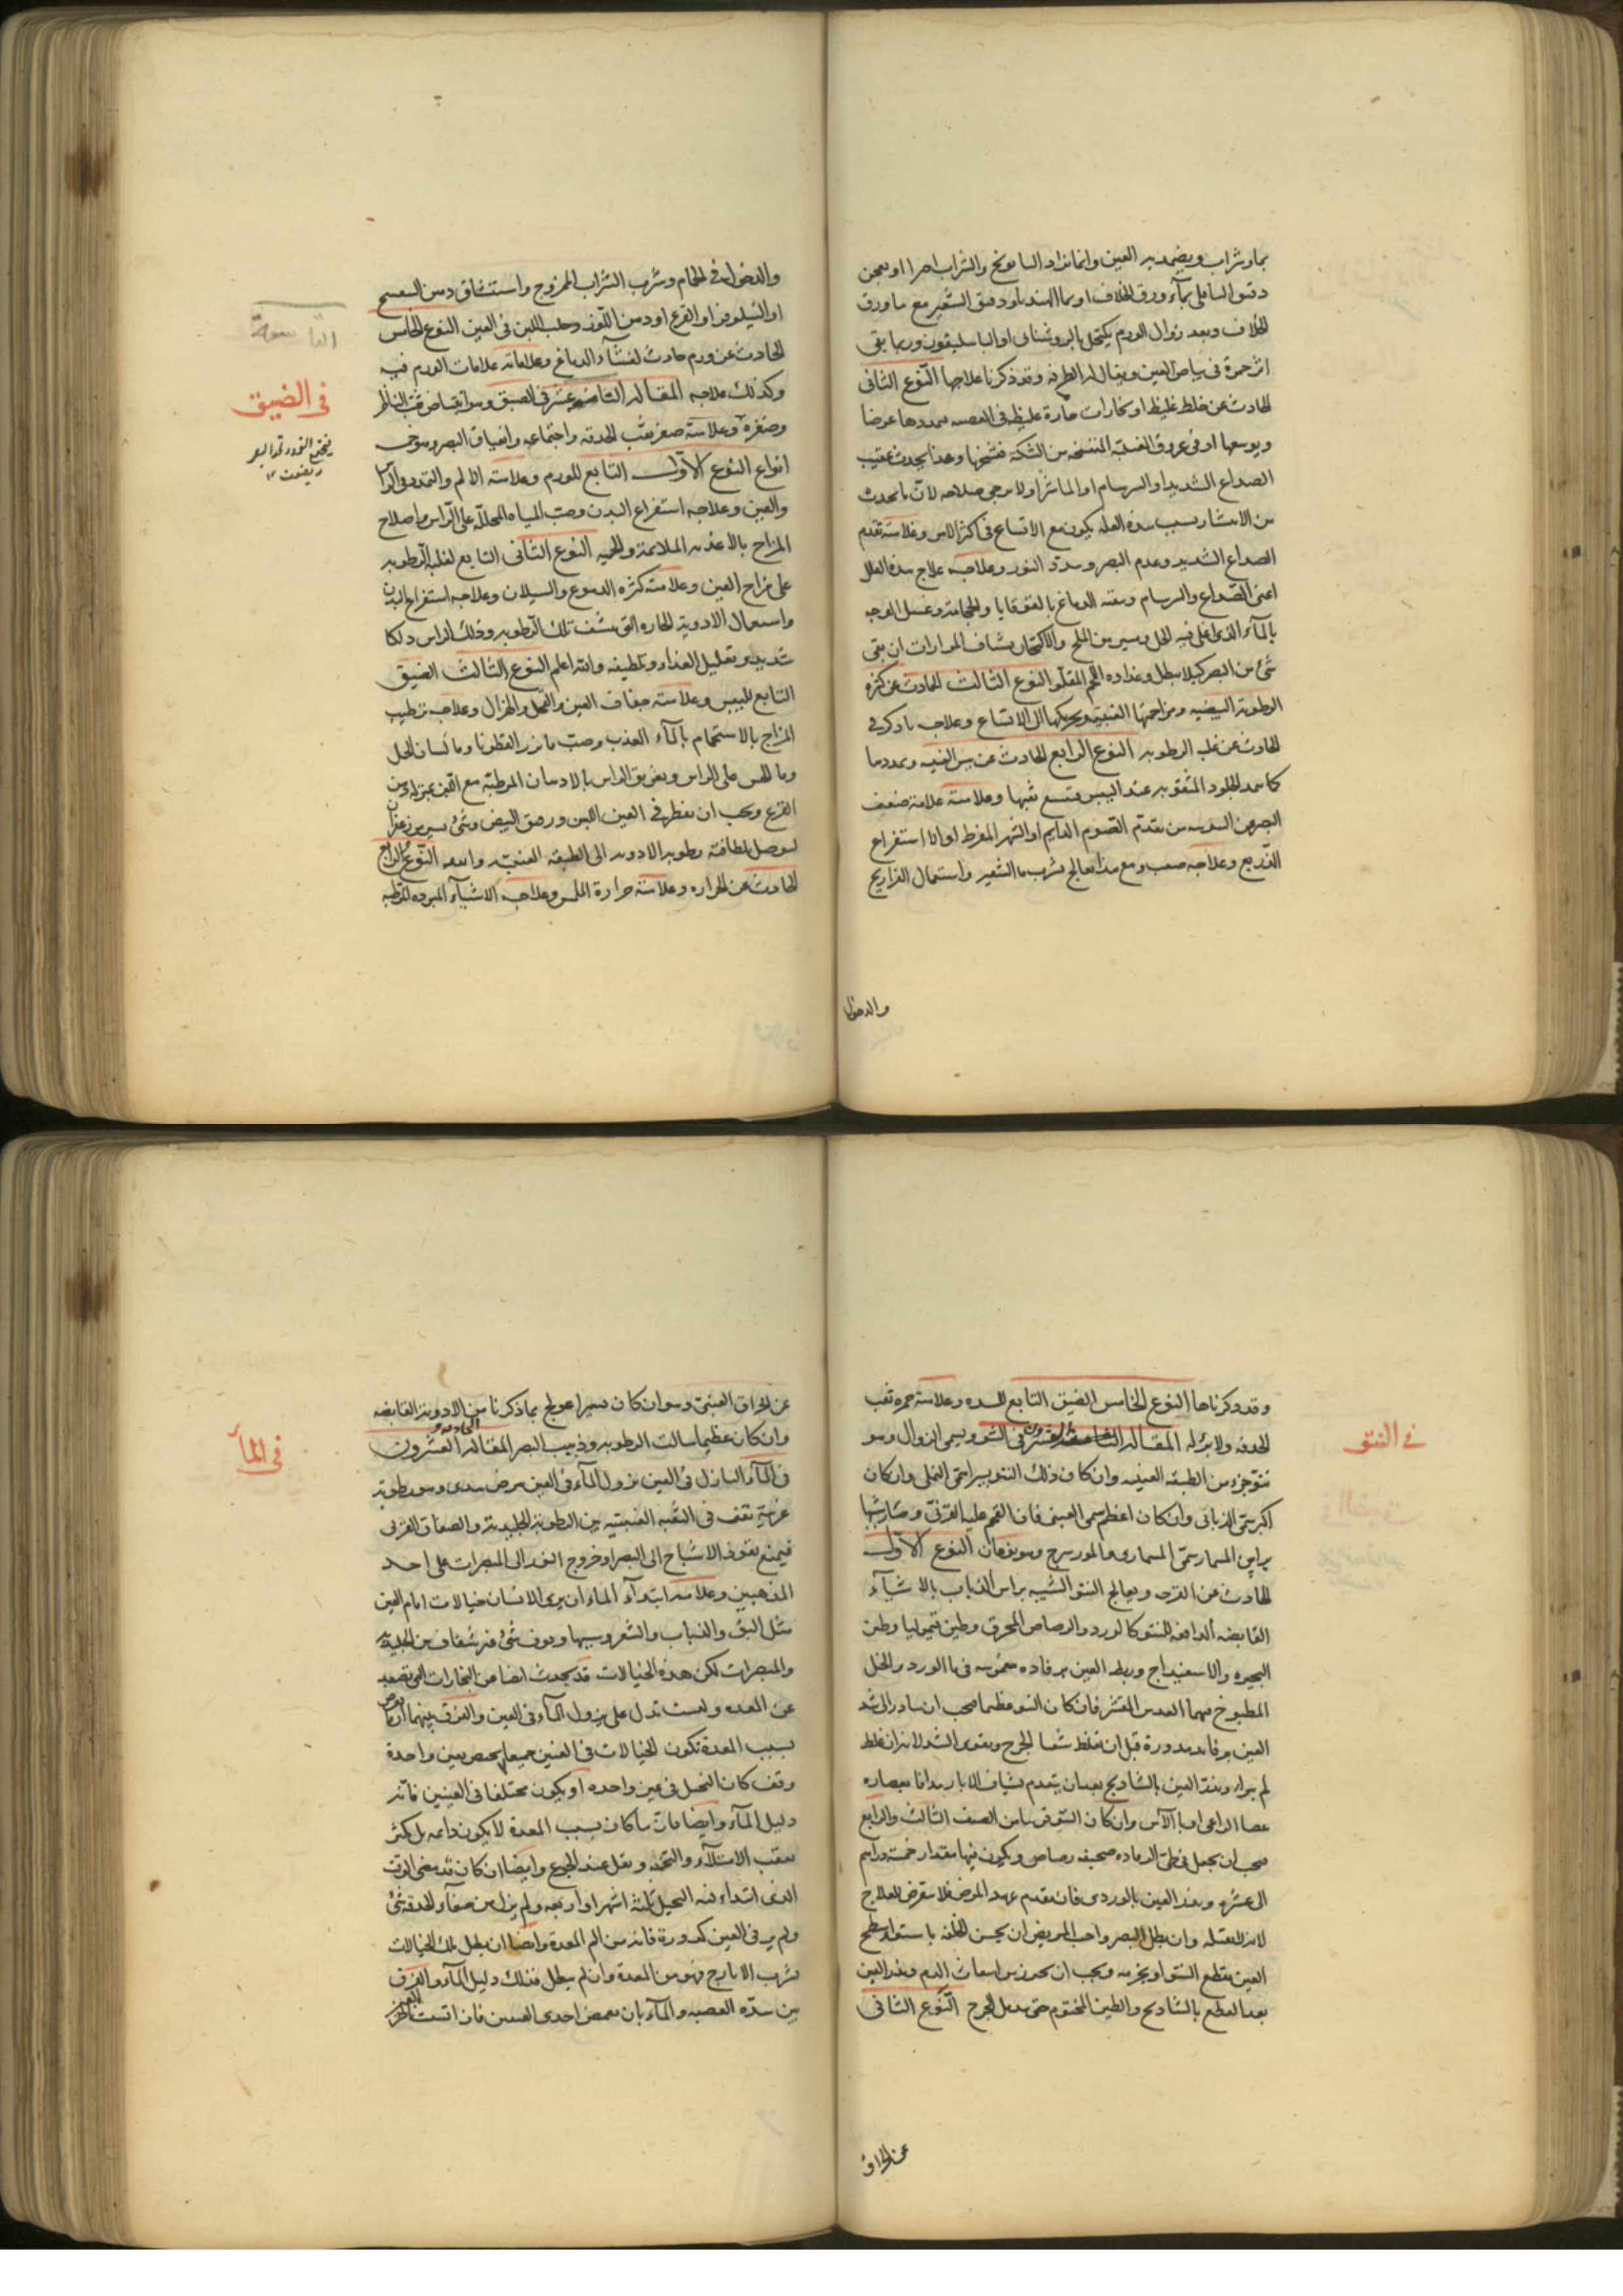 بماء وشراب ويضمد به العين وانما نراد البابونج والشراب اخرا او يعجن
دقيق الباقلى بماء ورق الخلاف او بماء الهندباء ودقيق الشعير مع ماء ورق
الخلاف وبعد زوال الورم يكتحل بالروشنايى او الباسليقون وربما بقى
اثر حمرة فى بياض العين ويقال له الطرفه وقد ذكرنا علاجها النوع الثانى
الحادث عن خلط غليظ او بخارات حارة غليظه فى العصبه يمددها عرضا
ويوسعها او فى عروق الغشية المنتسجه من الشبكة فتشنجها وهذا يحدث عقيب
الصداع الشديد او السرسام او الماشرا ولا يرجى صلاحه لان ما يحدث
من الانتشار بسبب هذه العله يكون مع الاتساع فى اكثر الناس وعلامته تقدم
الصداع الشديد وعدم البصر وسدة النور وعلاجه علاج هذه العلل
اعنى الصداع والسرسام وينقه الدماغ بالقوقايا والحجامة وغسل الوجه
بالماء الذى اغلى فيه الخل ويسير من الملح والاكتحال بشياف المرارات ان بقى
شئ من البصر كيلا يبطل وغذاوه اللحم المقلو النوع الثالث الحادث عن كثرة
الرطوبة البيضيه ومزاحمتها العنبية وتحريكها الى الاتساع وعلاجه ما ذكر فى
الحادث عن غلبه الرطوبه النوع الرابع الحادث عن يبس العنبيه وتمددها
كما تمدد الجلود المثقوبه عند اليبس فتتسع ثقبها وعلامته علامة ضعف
البصر من اليبوسه من تقدم الصوم الدايم او السهر المفرط او انا استفراغ
الذريع وعلاجه صعب ومع هذا يعالج بشرب ماء الشعير واستعمال الفراريج
والدخول
والدخول فى الحمام وشرب الشراب الممزوج واستنشاق دهن البنفسج
او النيلوفر او القرع او دهن اللوز وحلب اللبن فى العين النوع الخامس
الحادث عن ورم حادث لغشاء الدماغ وعلاماته علامات الورم فيه
وكذلك علاجه المقالة الثامنه عشر فى الضيق وهو انقباض ثقب الناظر
وصغره وعلامته صغر ثقب الحدقه واجتماعه وانضياق البصر وهو خمس
انواع النوع الاول التابع للورم وعلامته الالم والتمدد فى الراس
والعين وعلاجه استفراغ البدن وصب المياه المحللة على الراس واصلاح
المزاج بالاغذيه الملايمة والحميه النوع الثانى التابع لغلبه الرطوبه
على مزاج العين وعلامته كثره الدموع والسيلان وعلاجه استفراغ البدن
واستعمال الادوية الحاره التى تنشف تلك الرطوبه وذلك الراس دلكا
شديدا وتقليل الغذاء وتلطيفه والله اعلم النوع الثالث الضيق
التابع لليبس وعلامته جفاف العين والقحل والهزال وعلاجه ترطيب
المزاج بالاستحمام بالماء العذب وصب ماء بزر القطونا وماء لسان الحمل
وماء الخس على الراس وتغريق الراس بالادهان المرطبة مع اللبن بمنزلة دهن
القرع ويجب ان يقطر فى العين اللبن ورقيق البيض وشئ يسير من زعفران
ليوصل بلطافته رطوبه الادويه الى الطبقه العنبيه والله النوع الرابع
الحادث عن الحراره وعلامته حرارة الملمس وعلاجه الاشياء المبرده المرطبه
فى الضيق
وقد ذكرناها النوع الخامس الضيق التابع للسده وعلامته حمره ثقب
الحدقه ولا برء له المقالة التاسعه عشر فى النتو ويسمى الزوال وهو
نتو جزء من الطبقه العنبيه وان كان ذلك النتو يسيرا سمى النملى وان كان
اكبر سمى الذبابى وان كان اعظم سمى العنبى فان التحم عليه القرنى وصار شبيها
براس المسمار سمى المسمارى والمورسرج وهو نوعان النوع الاول
الحادث عن القرحه ويعالج النتو الشبيه براس الذباب بالاشياء
القابضه الدافعه للنتو كالورد والرصاص المحرق وطين قيموليا وطين
البحيره والاسفيداج وربط العين برفاده مغموسه فى ماء الورد والخل
المطبوخ فيهما العدس المقشر فان كان النتو عظيما فيجب ان يبادر الى شد
العين برفايد مدورة قبل ان تغلظ شفا الجرح ويقوى الشد لانه ان غلظ
لم يبرا ويذر العين بالشاذنج بعد ان يتقدم بشياف الابار مدافا بعصاره
عصا الراعى او ماء الآس وان كان النتو قريبا من الصنف الثالث والرابع
فيجب ان يجعل فى طى الرفاده صحيفه رصاص ويكون فيها مقدار خمسة دراهم
الى عشره ويذر العين بالوردى فان تقدم عهد المرض فلا يتعرض للعلاج
لانه لا يقبله وان بطل البصر واحب المريض ان يحسن الخلقه باستواء سطح
العين يقطع النتو او يخزمه ويجب ان يحذر من انبعاث الدم ويذر العين
بعد القطع بالشاذنج والطين المختوم حتى يندمل الجرح النوع الثانى
عن انخراق
فى النتو
عن انخراق العنبى وهو ان كان يسيرا عولج بما ذكرنا من الادويه القابضه
وان كان عظيما سالت الرطوبه وذهب البصر المقالة العشرون
فى الماء النازل فى العين نزول الماء فى العين مرض سدى وهو رطوبة
غريبة تقف فى الثقبه العنبيه بين الرطوبة الجليدية والصفاق القرنى
فيمنع نفوذ الاشباح الى البصر او خروج النور الى المبصرات على احد
المذهبين وعلامه ابتداء الماء ان يرى الانسان خيالات امام العين
مثل البق والذباب والشعر وسببها وقوف شئ غير شفاف بين الجليديه
والمبصرات لكن هذه الخيالات قد يحدث ايضا من البخارات التى تصعد
عن المعده وليست تدل على نزول الماء فى العين والفرق بينهما ان ما يعرض
بسبب المعدة تكون الخيالات فى العينين جميعا لا يختص بعين واحدة
وقف كان التخيل فى عين واحده او يكون مختلفا فى العينين فانه
دليل الماء وايضا فان ما كان بسبب المعدة لا يكون دايمه بل يكثر
بعقب الامتلاء والتخمه ويقل عند الجوع وايضا ان كان قد مضى الوقت
الذى ابتداء فيه التخيل ثلثه اشهر او اربعه ولم يزل من صفاء الحدقة شئ
ولم ير فى العين كدورة فانه من الم المعدة وايضا ان بطل تلك الخيالات
بشرب الايارج فهو من المعدة وان لم يبطل فذلك دليل الماء والفرق
بين سدة العصبه والماء بان تغمض احدى العينين فان اتسعت
فى الماء